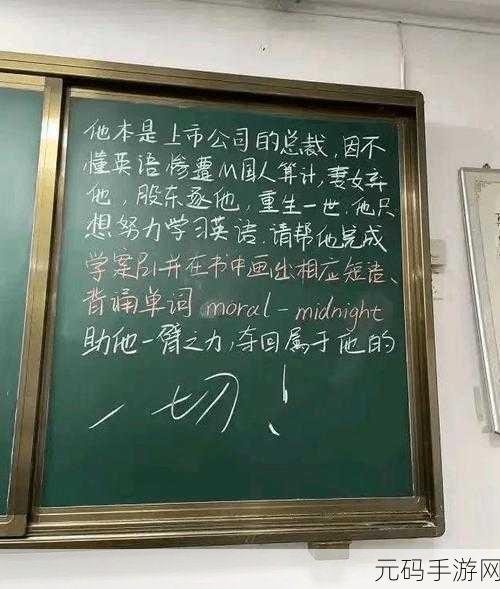 他本是上市公司的总裁,因不
懂英语惨遭从国人算计,妻女弃
他,股东逐他,重生一世.他只
想努力学习英语.请帮他完成
学案P.1并在书中画出相应短语、
背诵单词 moral-midnight
助他一臂之力,夺回属于他的
一切!
元码手游网